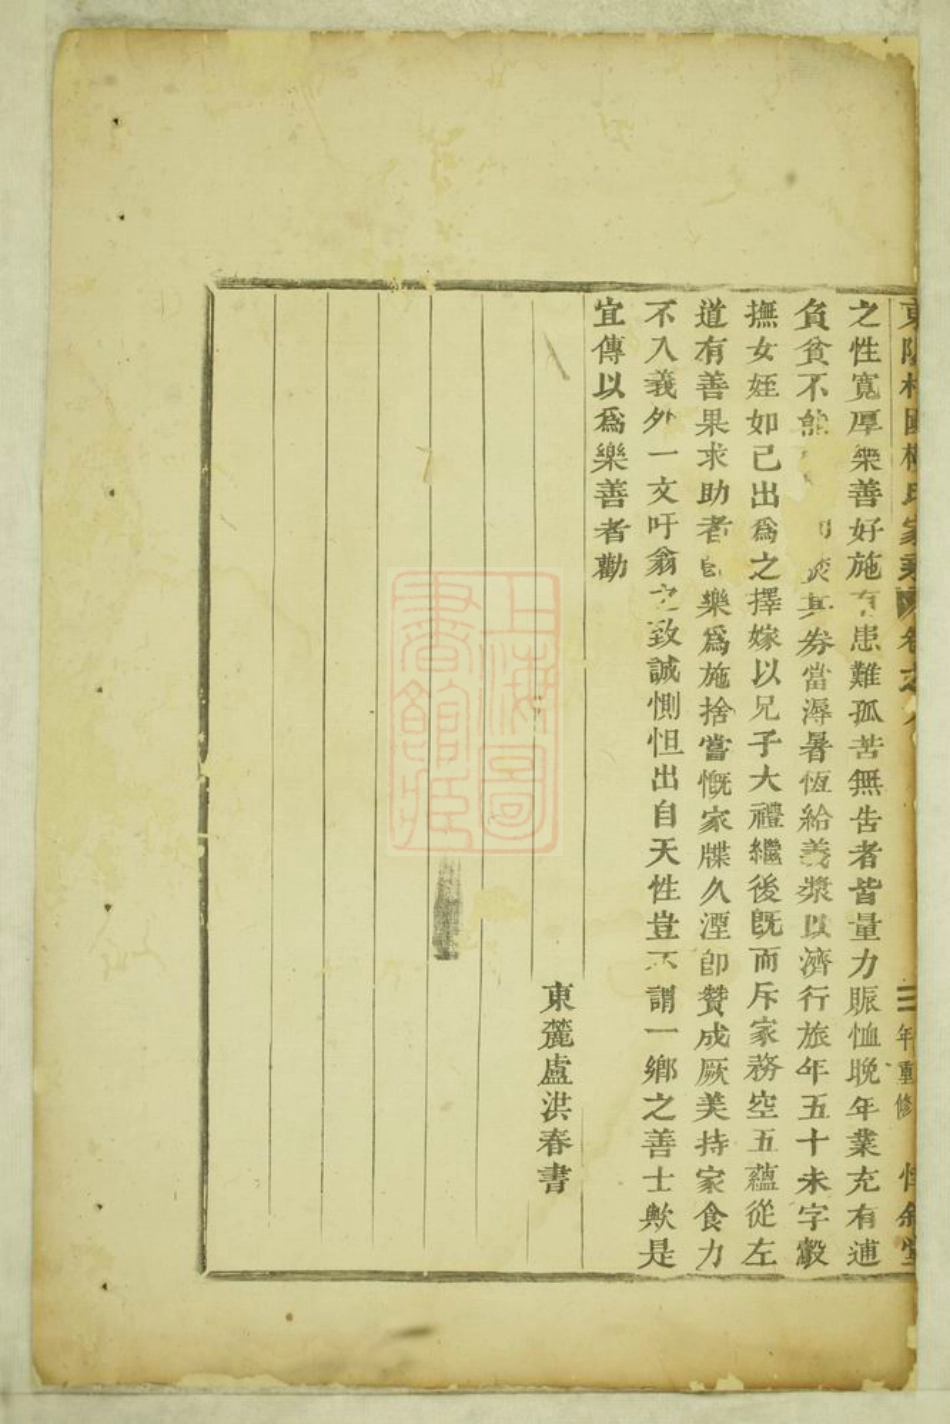 家乘 卷之八 三年重修 惇敘堂
之性寬厚樂善好施有患難孤苦無告者皆量力賑恤晚年業充有逋
負貧不能 券當溽暑恆給義漿以濟行旅年五十未字鞠
撫女姪如己出爲之擇嫁以兄子大禮繼後旣而斥家務空五蘊從左
道有善果求助者 樂爲施捨嘗慨家牒久湮卽贊成厥美持家食力
不入義外一文吁翁之致誠惻怛出自天性豈不謂一鄉之善士歟是
宜傳以爲樂善者勸
東麓盧洪春書
上海圖書館藏